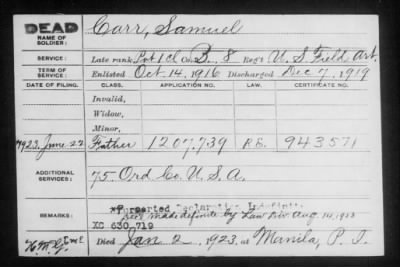 DEAD
Carr, Samuel
NAME OF SOLDIER:
SERVICE: Late rank, Pvt 1 cl Co. B. 8 Reg't U. S. Field Art.
TERM OF SERVICE: Enlisted Oct. 14, 1916 Discharged Dec 7, 1919
DATE OF FILING. CLASS. APPLICATION NO. LAW. CERTIFICATE NO.
Invalid,
Widow,
Minor,
1923, June 22 Father 1207,739 943571
ADDITIONAL SERVICES: 75. Ord Co. U. S. A.
*Purported Declaration Indefinite
made definite by Law Div. Aug. 10, 1923
REMARKS: XC 630,719
Died Jan 2, 1923, at Manila, P. I.